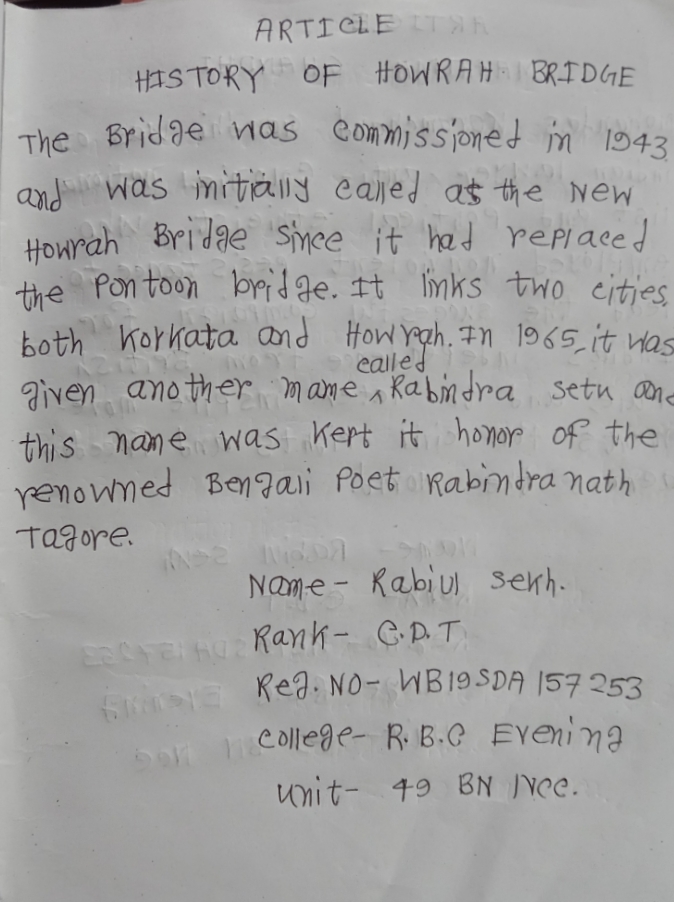 ARTICLE
HISTORY OF HOWRAH BRIDGE
The Bridge was commissioned in 1943
and was initially called as the New
Howrah Bridge since it had replaced
the Pontoon bridge. It links two cities,
both Korkata and Howrah. In 1965, it was
called
given another mame ^ Rabindra setu and
this name was kept it honor of the
renowned Bengali Poet Rabindra nath
Tagore.
Name - Rabiul Sekh.
Rank - C.D.T
Reg. NO - WB19SDA 157253
college - R.B.C Evening
unit - 49 BN NCC.